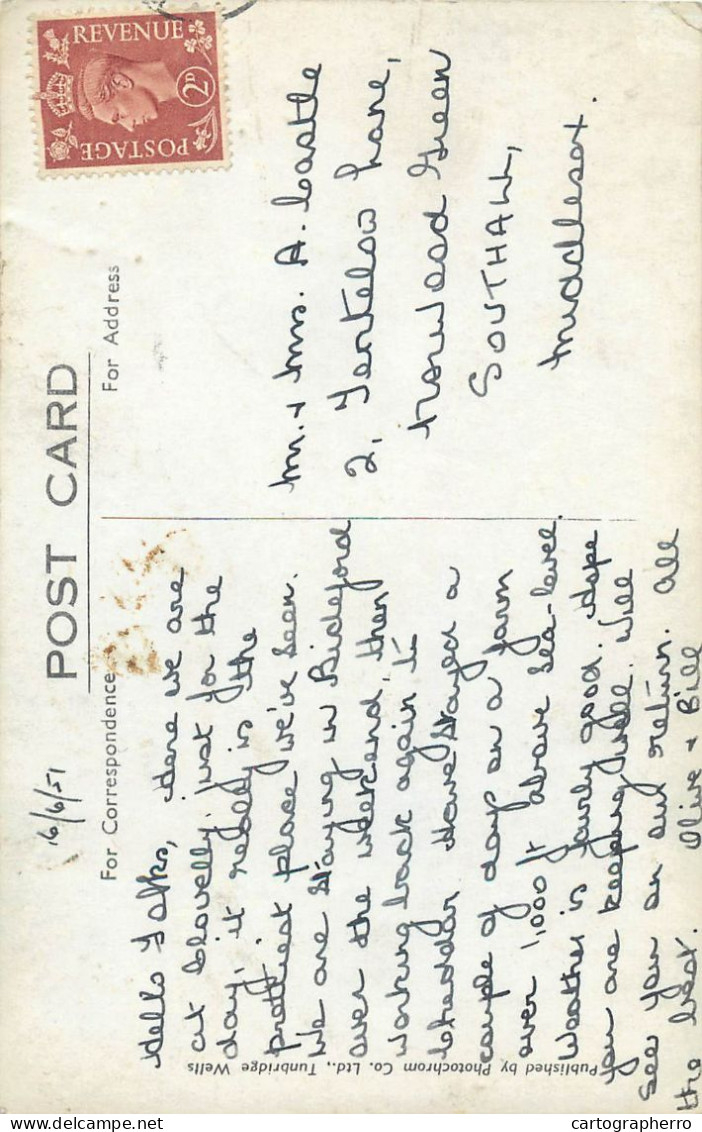 POST CARD
16/6/51
For Correspondence
For Address
Hello Folks, Here we are
at Clovelly, just for the
day, it really is the
prettiest place we've seen.
We are staying in Bideford
over the weekend, then
working back again to
Cheddar. Have stayed a
couple of days on a farm
over 1,000 ft above sea-level.
Weather is fairly good. Hope
you are keeping well. Will
see you on our return. All
the best. Olive & Bill
Mr. & Mrs. A. Castle
2, Tentelow Lane,
Norwood Green
SOUTHALL,
Middlesex.
REVENUE
2D
POSTAGE
Published by Photochrom Co. Ltd., Tunbridge Wells
cartographerro